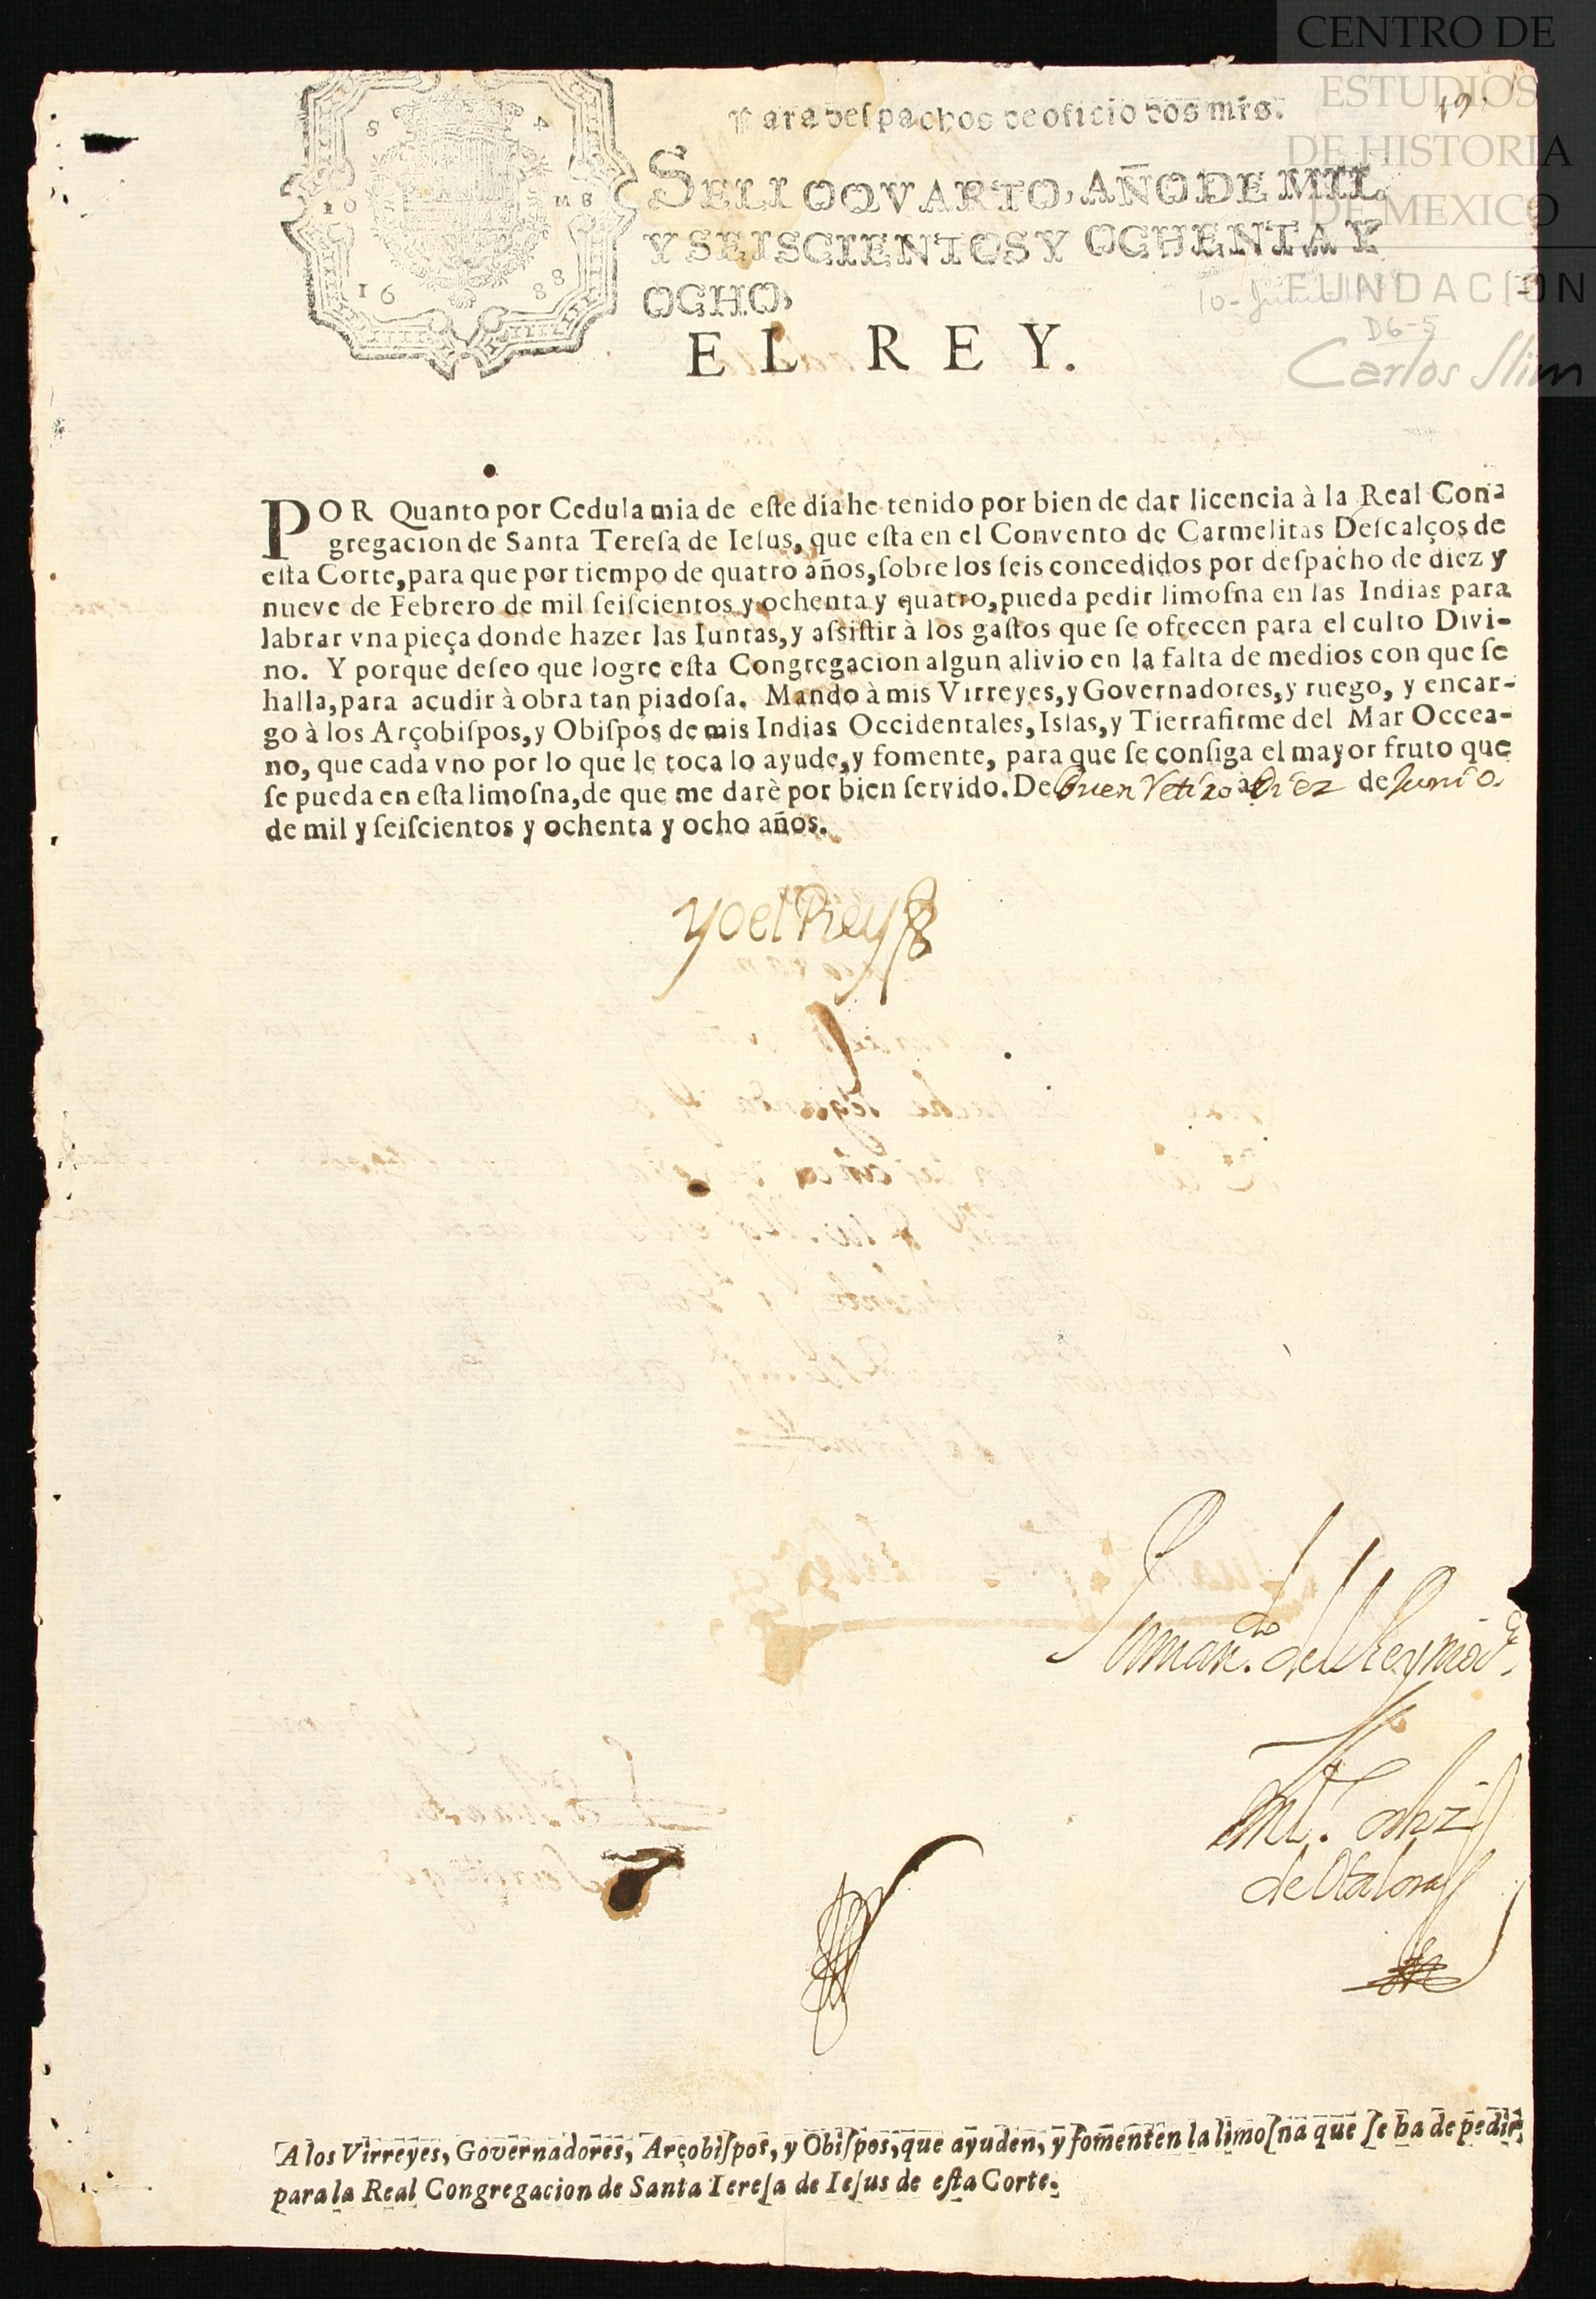 CENTRO DE
ESTUDIOS
DE HISTORIA
DE MEXICO
FUNDACIÓN
Carlos Slim
19.
Para despachos de oficio dos mrs.
SELLO QVARTO, AÑO DE MIL
Y SEISCIENTOS Y OCHENTA Y
OCHO,
16 88
D6-5
EL REY.
POR Quanto por Cedula mia de eſte dia he tenido por bien de dar licencia à la Real Con-
gregacion de Santa Tereſa de Ieſus, que eſta en el Convento de Carmelitas Deſcalços de
eſta Corte, para que por tiempo de quatro años, ſobre los ſeis concedidos por deſpacho de diez y
nueve de Febrero de mil ſeiſcientos y ochenta y quatro, pueda pedir limoſna en las Indias para
labrar vna pieça donde hazer las Iuntas, y aſsiſtir à los gaſtos que ſe ofrecen para el culto Divi-
no. Y porque deſeo que logre eſta Congregacion algun alivio en la falta de medios con que ſe
halla, para acudir à obra tan piadoſa. Mando à mis Virreyes, y Governadores, y ruego, y encar-
go à los Arçobiſpos, y Obiſpos de mis Indias Occidentales, Islas, y Tierrafirme del Mar Occea-
no, que cada vno por lo que le toca lo ayude, y fomente, para que ſe conſiga el mayor fruto que
ſe pueda en eſta limoſna, de que me darè por bien ſervido. De Buen Retiro à Diez de Junio
de mil y ſeiſcientos y ochenta y ocho años.
Yo el Rey
Por mandᵒ del Rey nro sr.
de Otalora
A los Virreyes, Governadores, Arçobiſpos, y Obiſpos, que ayuden, y fomenten la limoſna que ſe ha de pedir,
para la Real Congregacion de Santa Tereſa de Ieſus de eſta Corte.